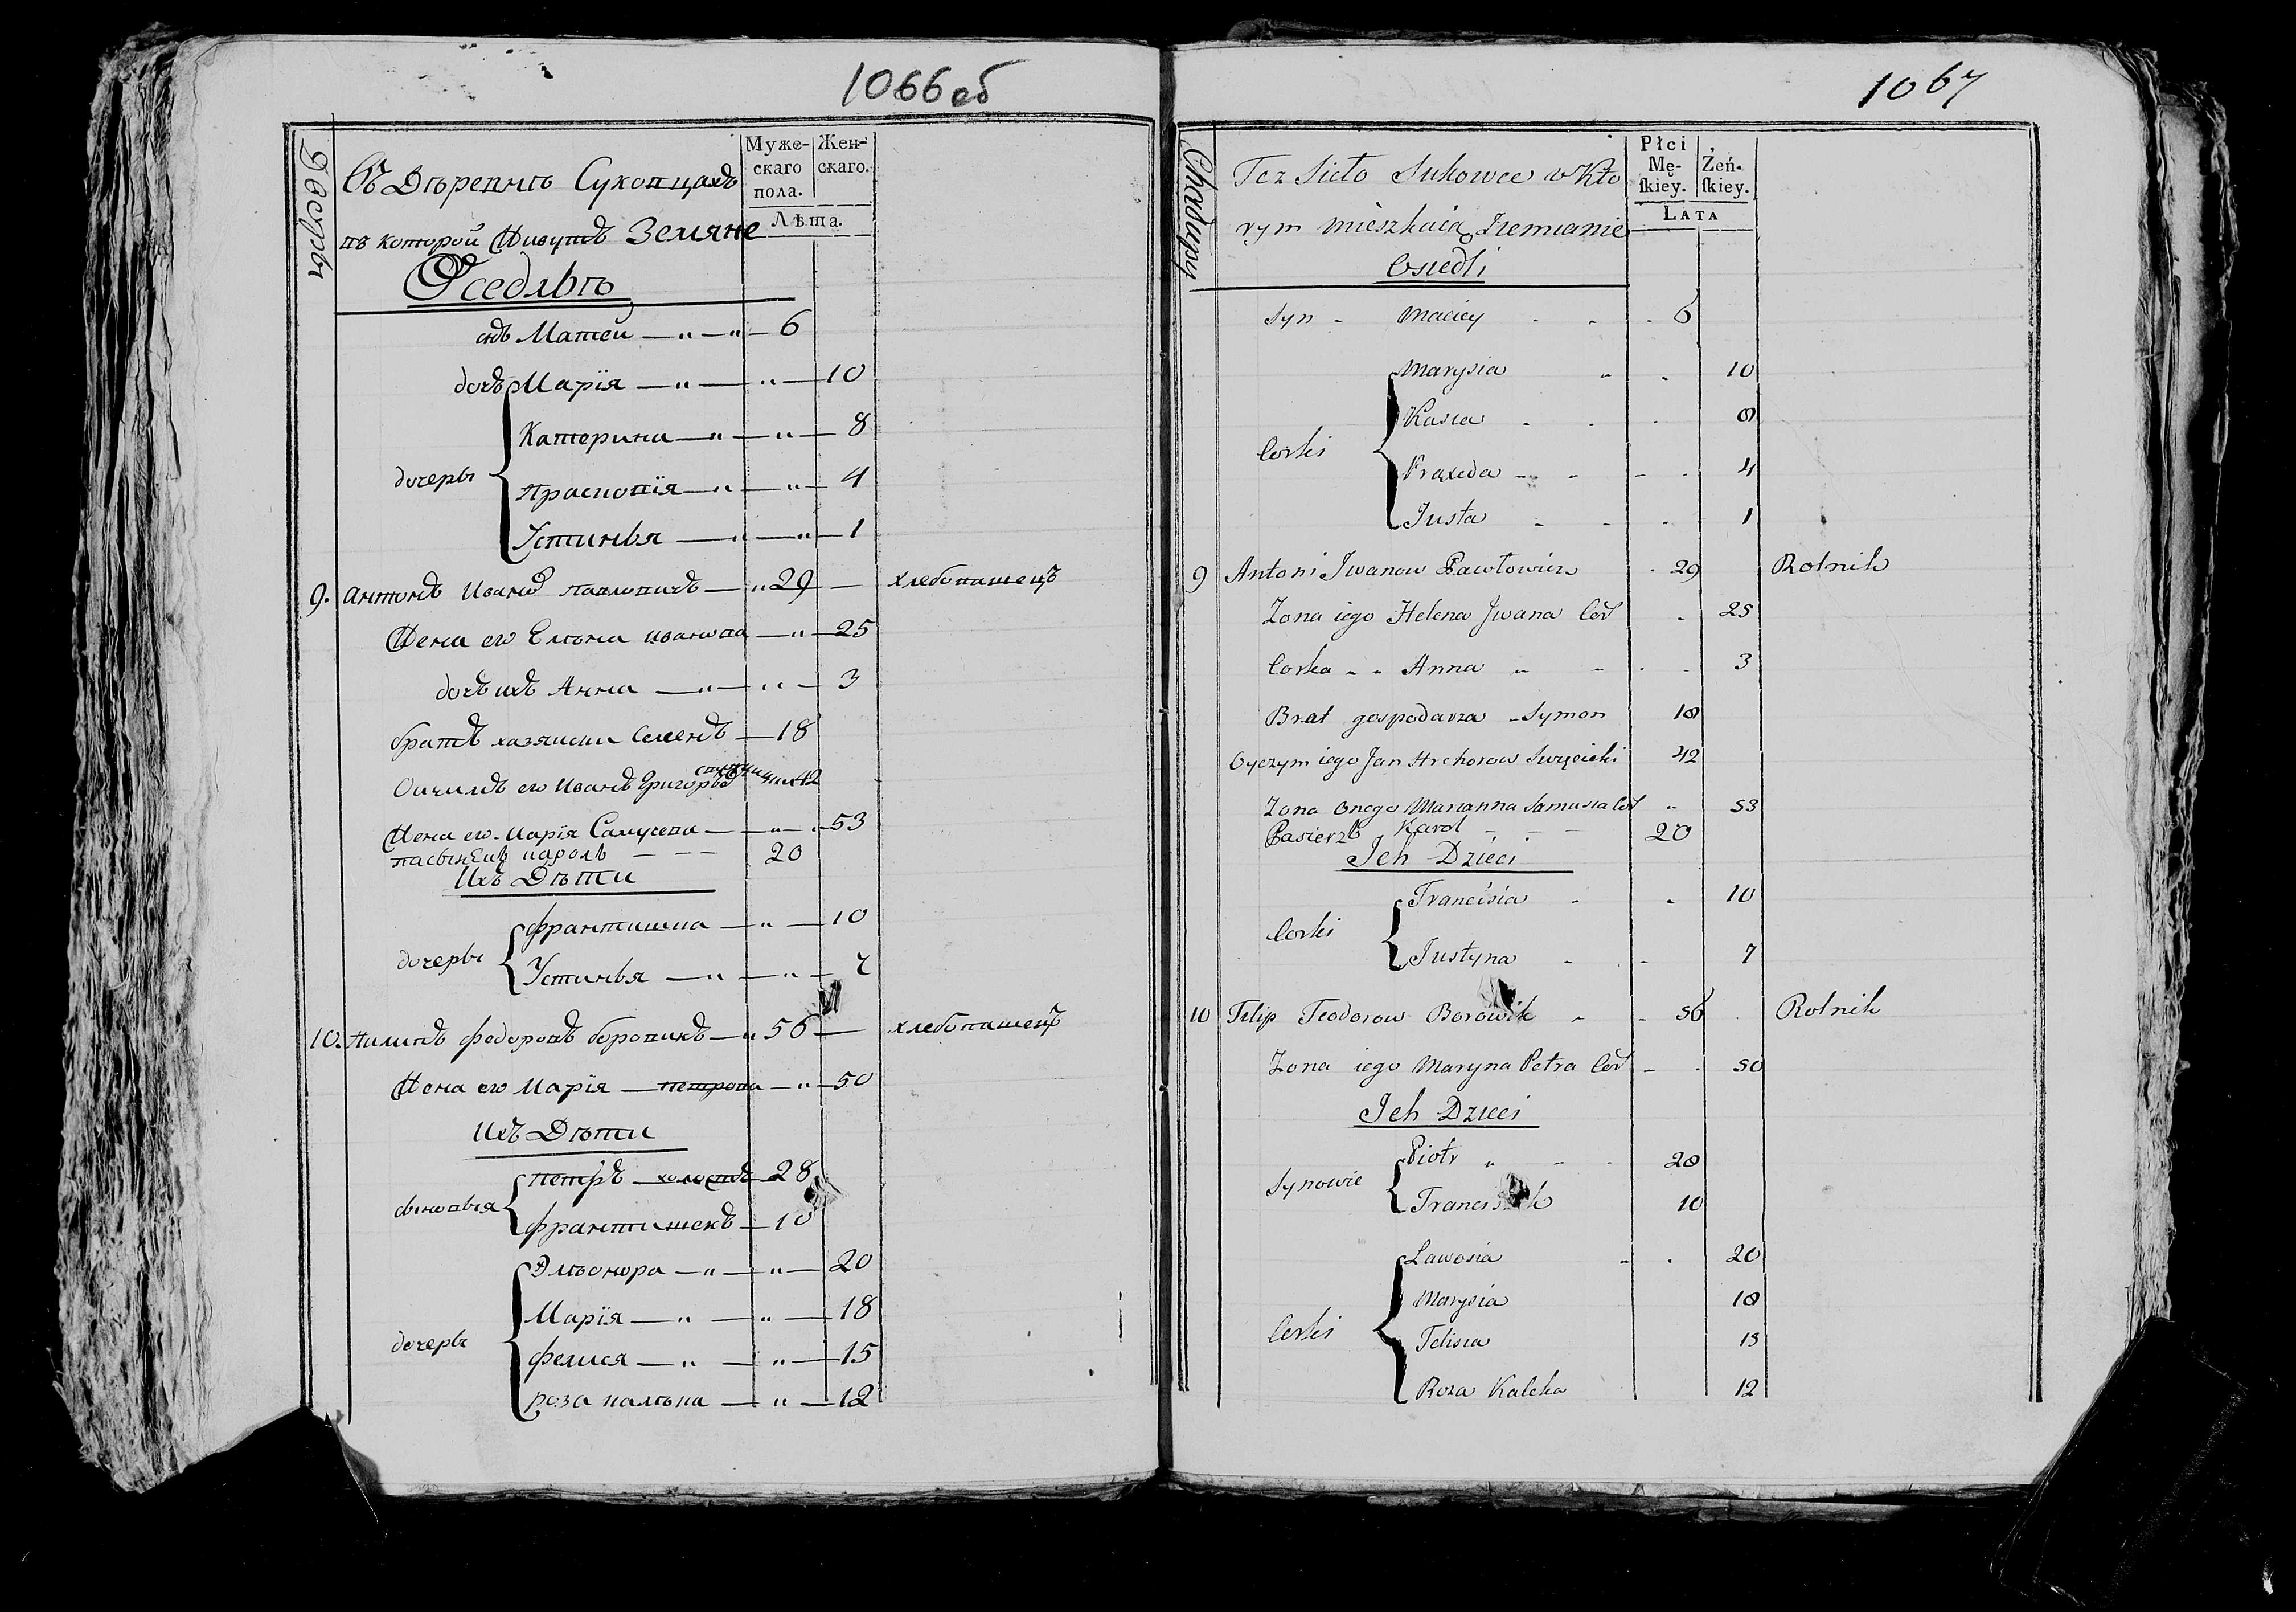 1066 об
Дворы
Въ Дѣревнѣ Суховцахъ
въ которой Живутъ Земяне
Оседлѣ
Муже-
скаго
пола.
Жен-
скаго.
Лѣта.
ихъ Матей — „ — „ — 6
дочь Марія — „ — „ — 10
Катерина — „ — „ — 8
дочеры
Прасковія — „ — „ — 4
Устинья — „ — „ — 1
9. Антонъ Ивановъ Павловичъ — „ 29 — хлебопашецъ
Жена его Елѣна Иванова — „ — 25
дочь ихъ Анна — „ — „ — 3
братъ хазяина Семенъ — 18
Отчимъ его Иванъ Григорьевъ 42
Жена его Марія Самусева — „ — 53
пасынокъ Кароль — — — 20
Ихъ Дѣти
Франтишка — „ — 10
дочеры
Устинья — „ — „ — 7
10. Филипъ Федоровъ Боровикъ — „ 56 — хлебопашецъ
Жена его Марія — Петрова — „ — 50
Ихъ Дѣти
Петръ — холостъ — 28
сыновья
Франтишекъ — 10
Эльонора — „ — „ — 20
Марія — „ — „ — 18
дочеры
Фелися — „ — „ — 15
Роза Калька — „ — 12
1067
Chałupy
Też Sieło Sukowce w Któ
rym mieszkaią Ziemianie
Osiedli
Płci
Mę-
ſkiey.
Żeń-
ſkiey.
LATA
Syn - Maciey 6
Marysia 10
Kasia 8
Corki
Praxeda 4
Justa 1
9 Antoni Iwanow Pawłowicz 29 Rolnik
Zona iego Helena Iwana Cor 25
Corka Anna 3
Brat gospodarza Symon 18
Oyczym iego Jan Hrehorow Święcicki 42
Zona onego Marianna Samusia Cor 53
Pasierzb Karol 20
Ich Dzieci
Francisia 10
Corki
Justyna 7
10 Filip Teodorow Borowik 56 Rolnik
Zona iego Maryna Petra Cor 50
Ich Dzieci
Piotr 28
Synowie
Franciszek 10
Lawosia 20
Marysia 18
Corki
Felisia 15
Roza Kalcka 12